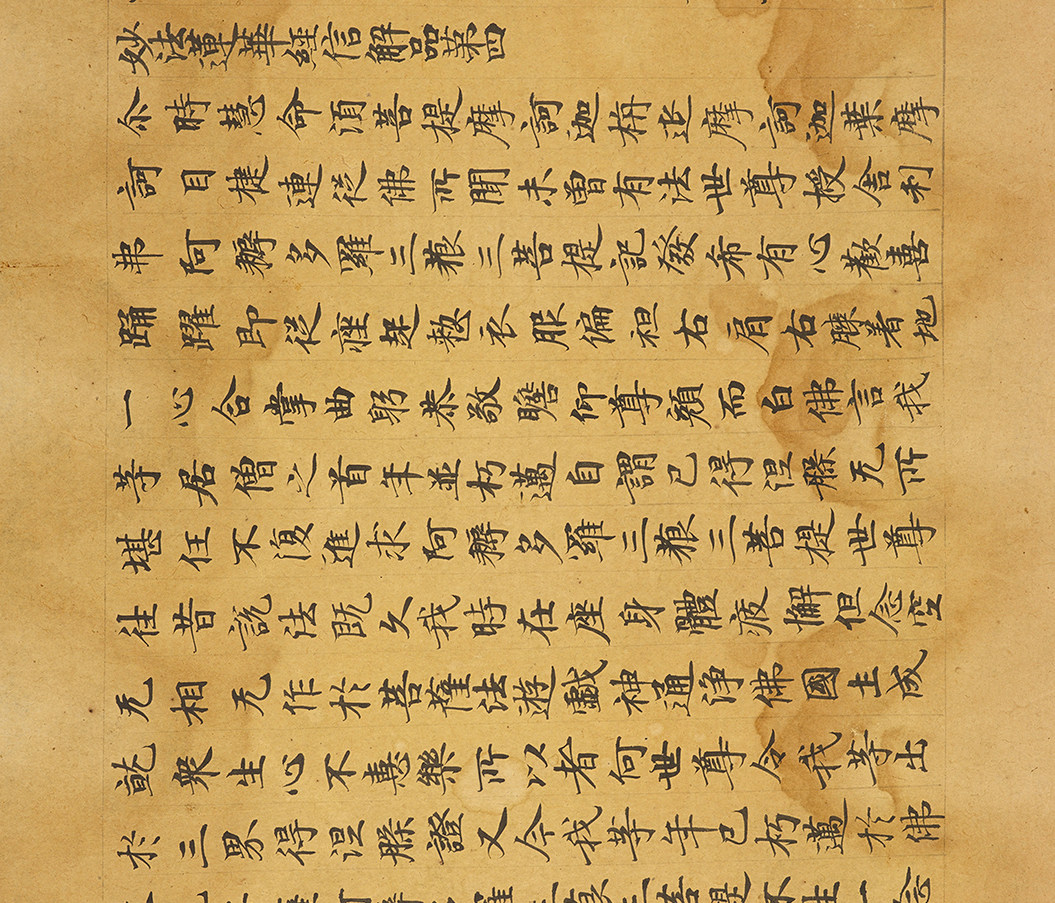 妙法蓮華經信解品第四
尒時慧命須菩提摩訶迦栴延摩訶迦葉摩
訶目揵連從佛所聞未曾有法世尊授舍利
弗阿耨多羅三藐三菩提記發希有心歡喜
踊躍即從座起整衣服偏袒右肩右膝著地
一心合掌曲躬恭敬瞻仰尊顏而白佛言我
等居僧之首年並朽邁自謂已得涅槃无所
堪任不復進求阿耨多羅三藐三菩提世尊
往昔說法既久我時在座身體疲懈但念空
无相无作於菩薩法遊戲神通淨佛國土成
就衆生心不憙樂所以者何世尊令我等出
於三界得涅槃證又今我等年已朽邁於佛
羅三藐三菩提不生一念